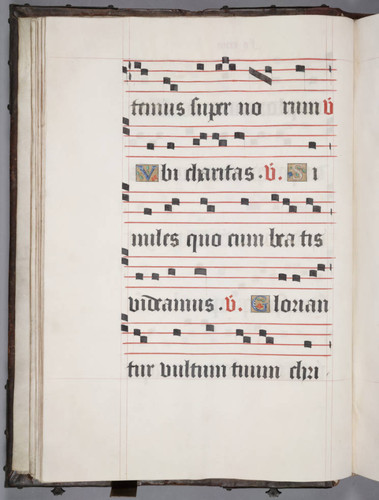 temus super no rum V
Vbi charitas . V. Si
miles quo cum bea tis
videamus . V. Glorian
tur vultum tuum chri